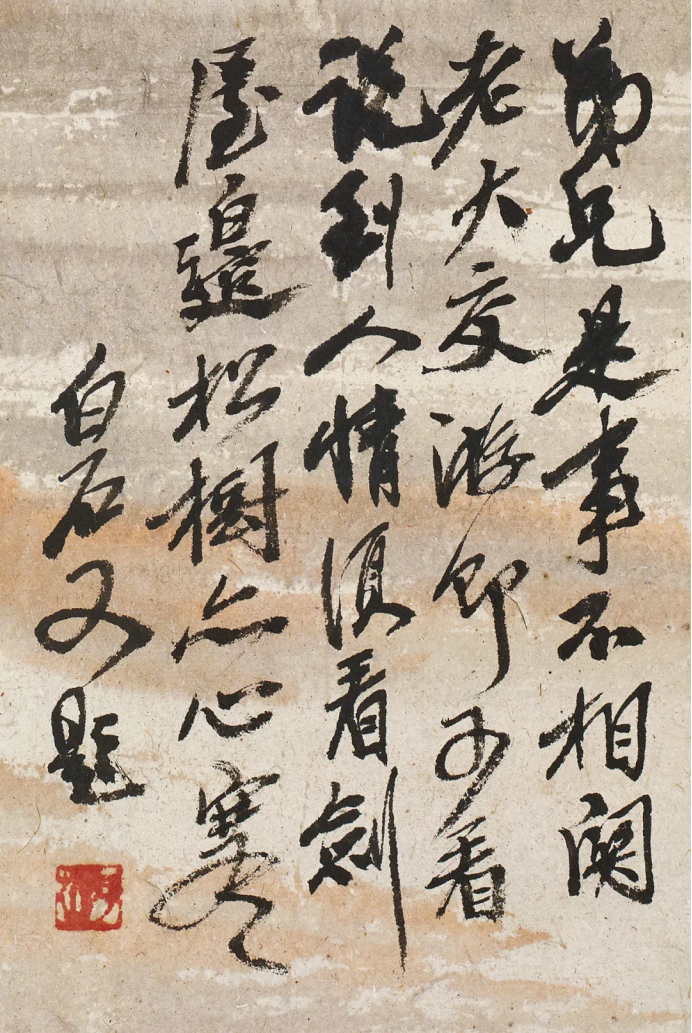 弟兄是事不相関
老大交游即可看
說到人情須看劍
屋邊松樹亦心寒
白石又題